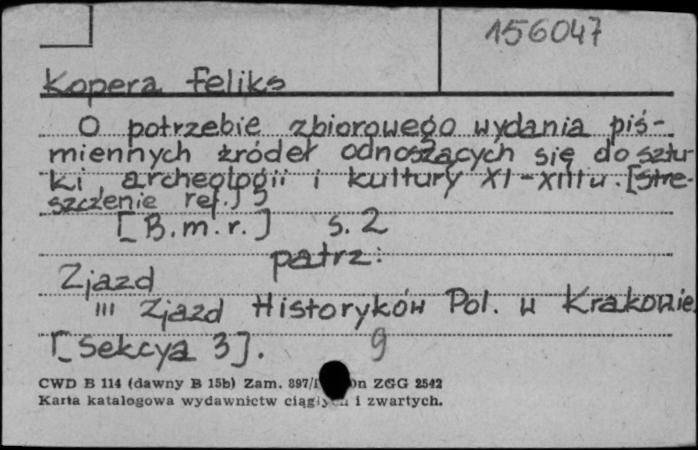 156047
Kopera Feliks
O potrzebie zbiorowego wydania piś-
miennych źródeł odnoszących się do sztu-
ki, archeologii i kultury XI-XIII w. [stre-
szczenie ref.]
[B.m.r.] s. 2
patrz:
Zjazd
III Zjazd Historyków Pol. w Krakowie
[Sekcya 3]. 9
CWD B 114 (dawny B 15b) Zam. 897/ ZGG 2542
Karta katalogowa wydawnictw ciągłych i zwartych.